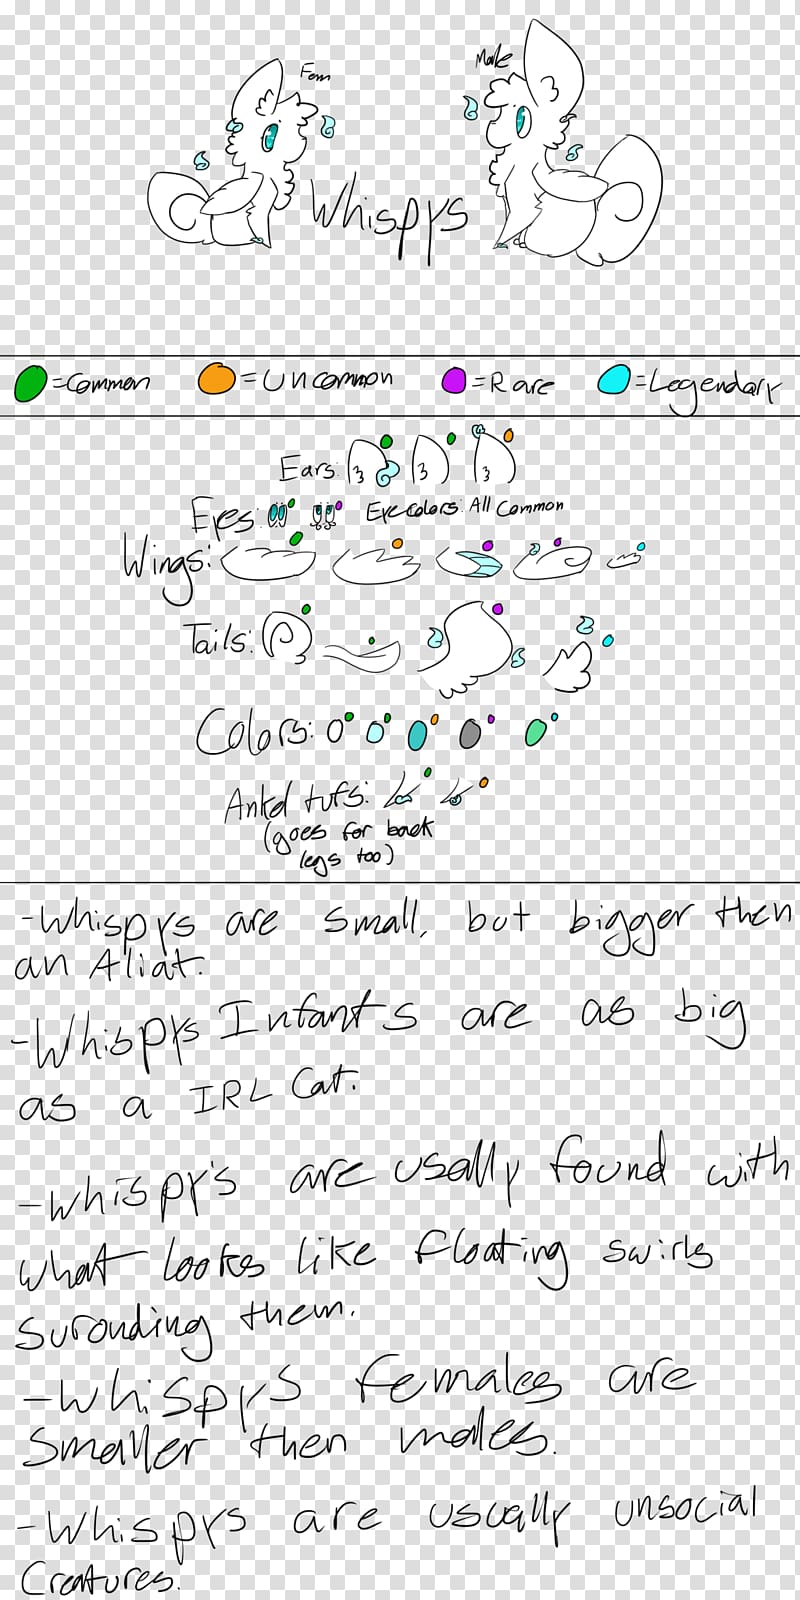 Fem
Male
Whispys
=Common =Uncommon =Rare =Legendary
Ears:
Eyes: Eye colors: All Common
Wings:
Tails:
Colors:
Ankel tufs:
(goes for back
legs too)
-Whispys are small, but bigger then
an Aliat.
-Whispys Infants are as big
as a IRL Cat.
-Whispy's are usally found with
what looks like floating swirls
surouding them.
-Whispys females are
smaller then males.
-Whispys are usually unsocial
Creatures.